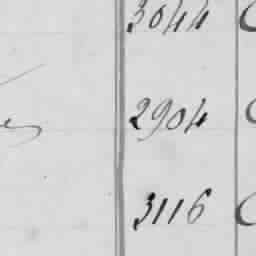 3044
2904
3116